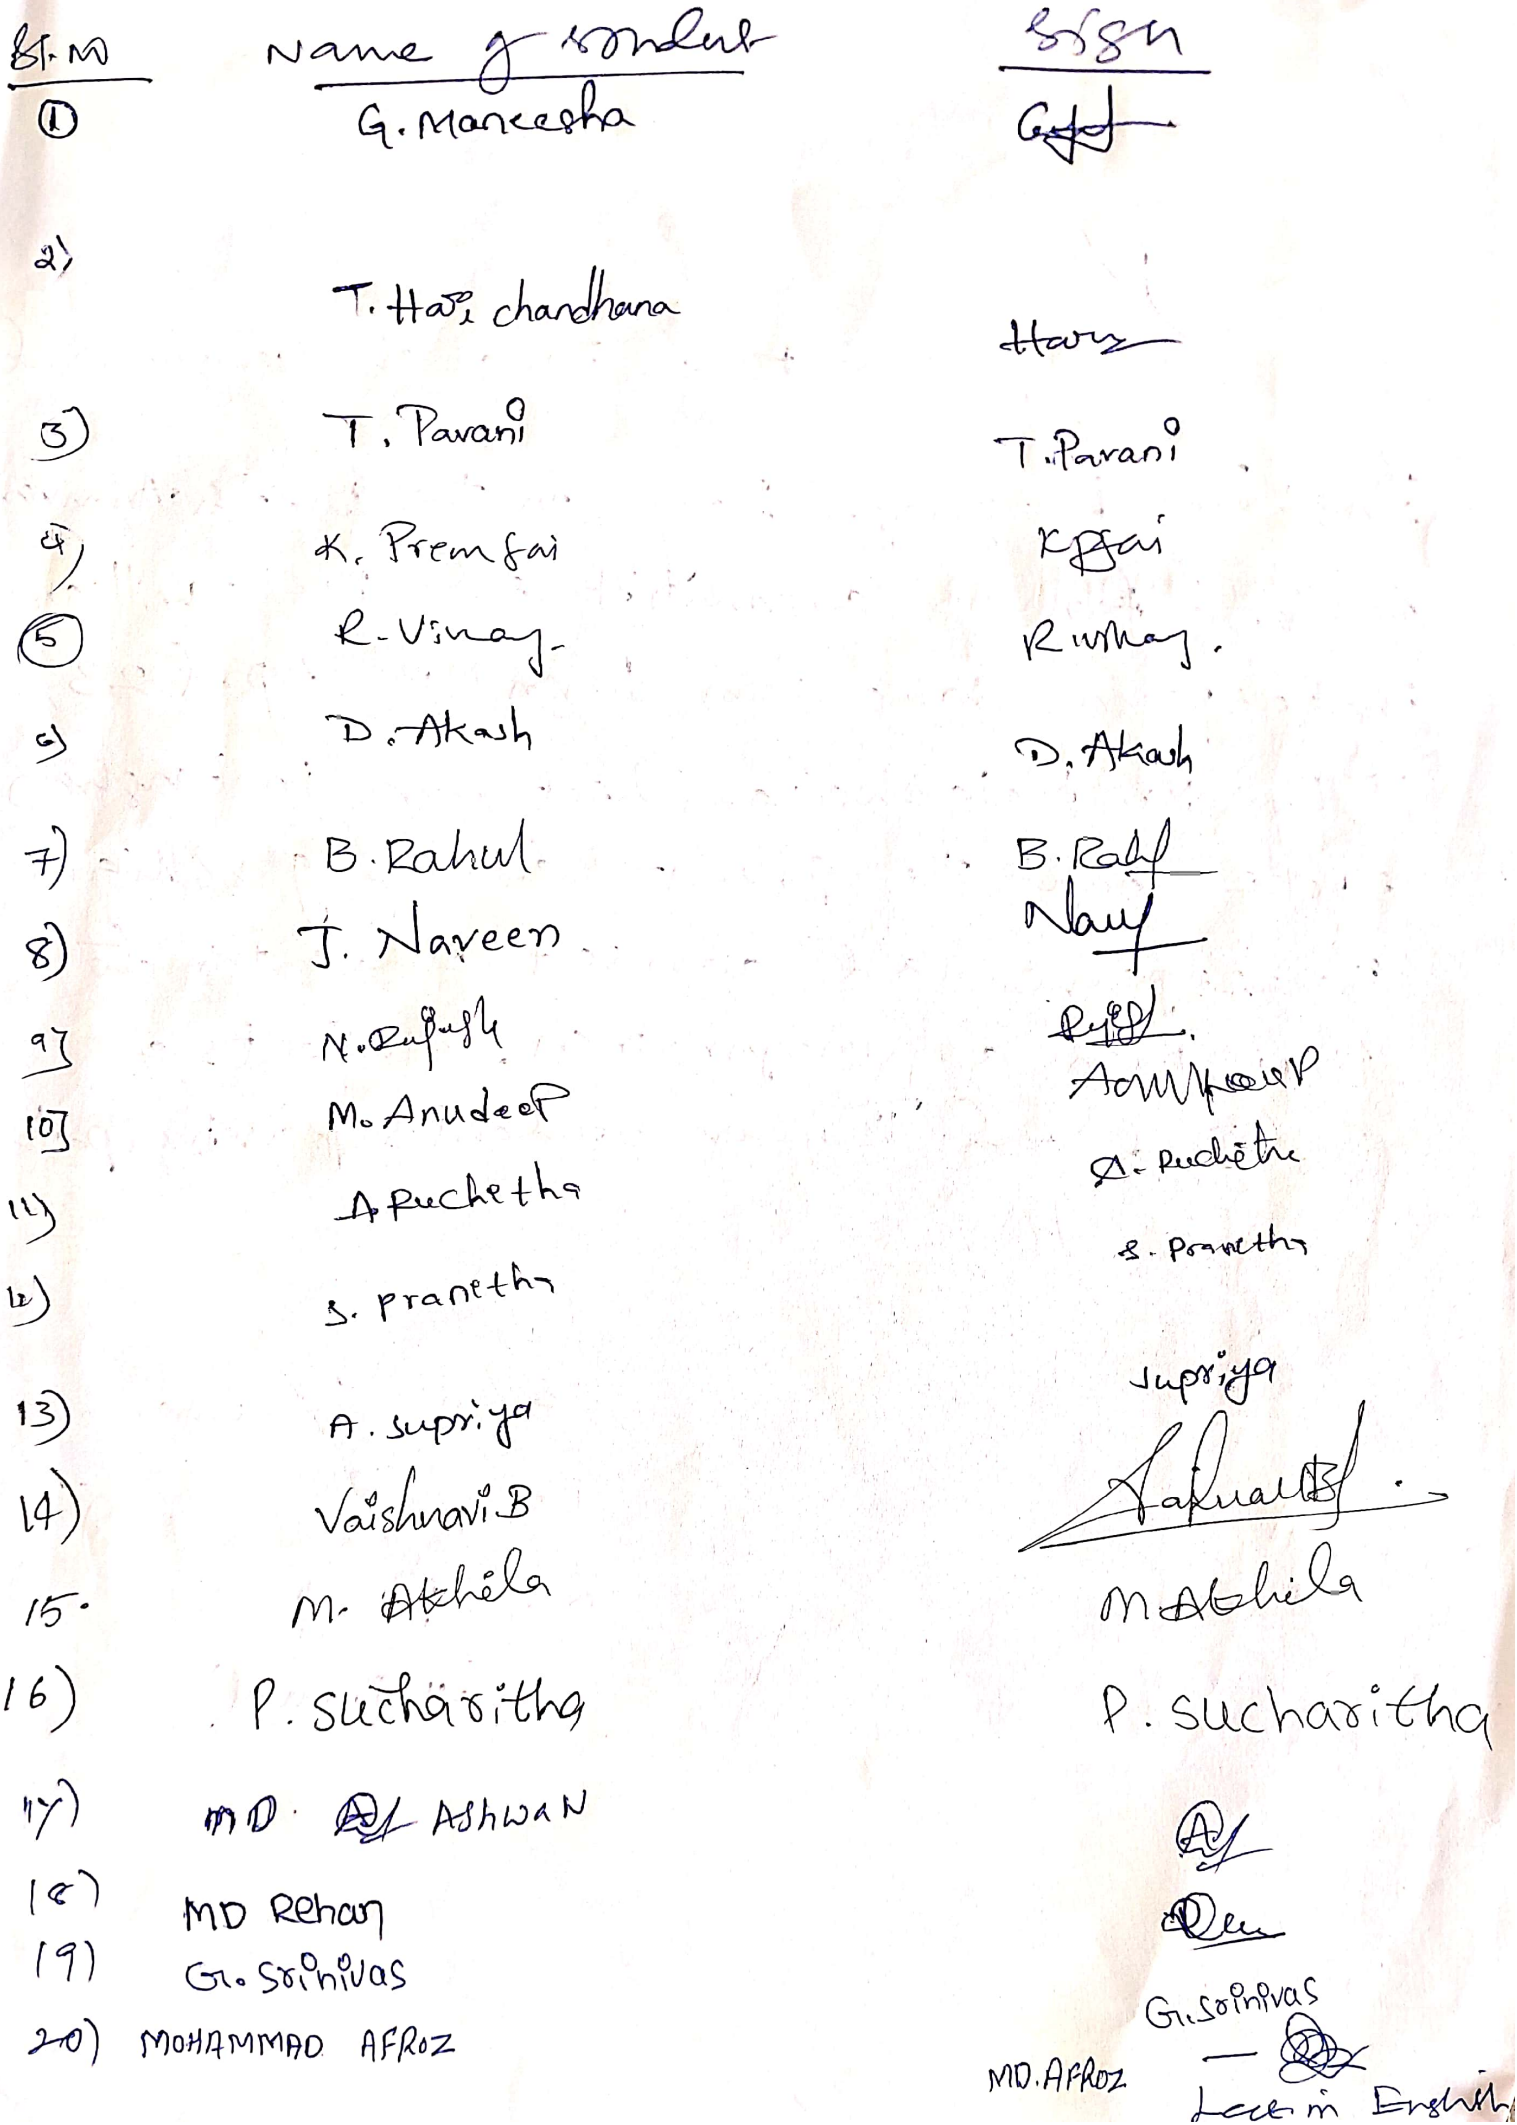 Sl. No Name of student Sign
1 G. Maneesha
2)
T. Hari chandhana Hari
3) T. Pavani T. Pavani
4) K. Prem Sai KPSai
5 R. Vinay. R Vinay.
6) D. Akash D. Akash
7) B. Rahul B. Rahul
8) J. Naveen
9] N. Rajesh
10] M. Anudeep
11) A Ruchetha A. Ruchetha
12) S. Pranetha S. Pranetha
13) A. Supriya Supriya
14) Vaishnavi. B
15. M. Akhila M Akhila
16) P. Sucharitha P. Sucharitha
17) MD. AshwaN
18) MD Rehan
19) G. Srinivas G. Srinivas
20) MOHAMMAD AFROZ MD. AFROZ
Lect in English